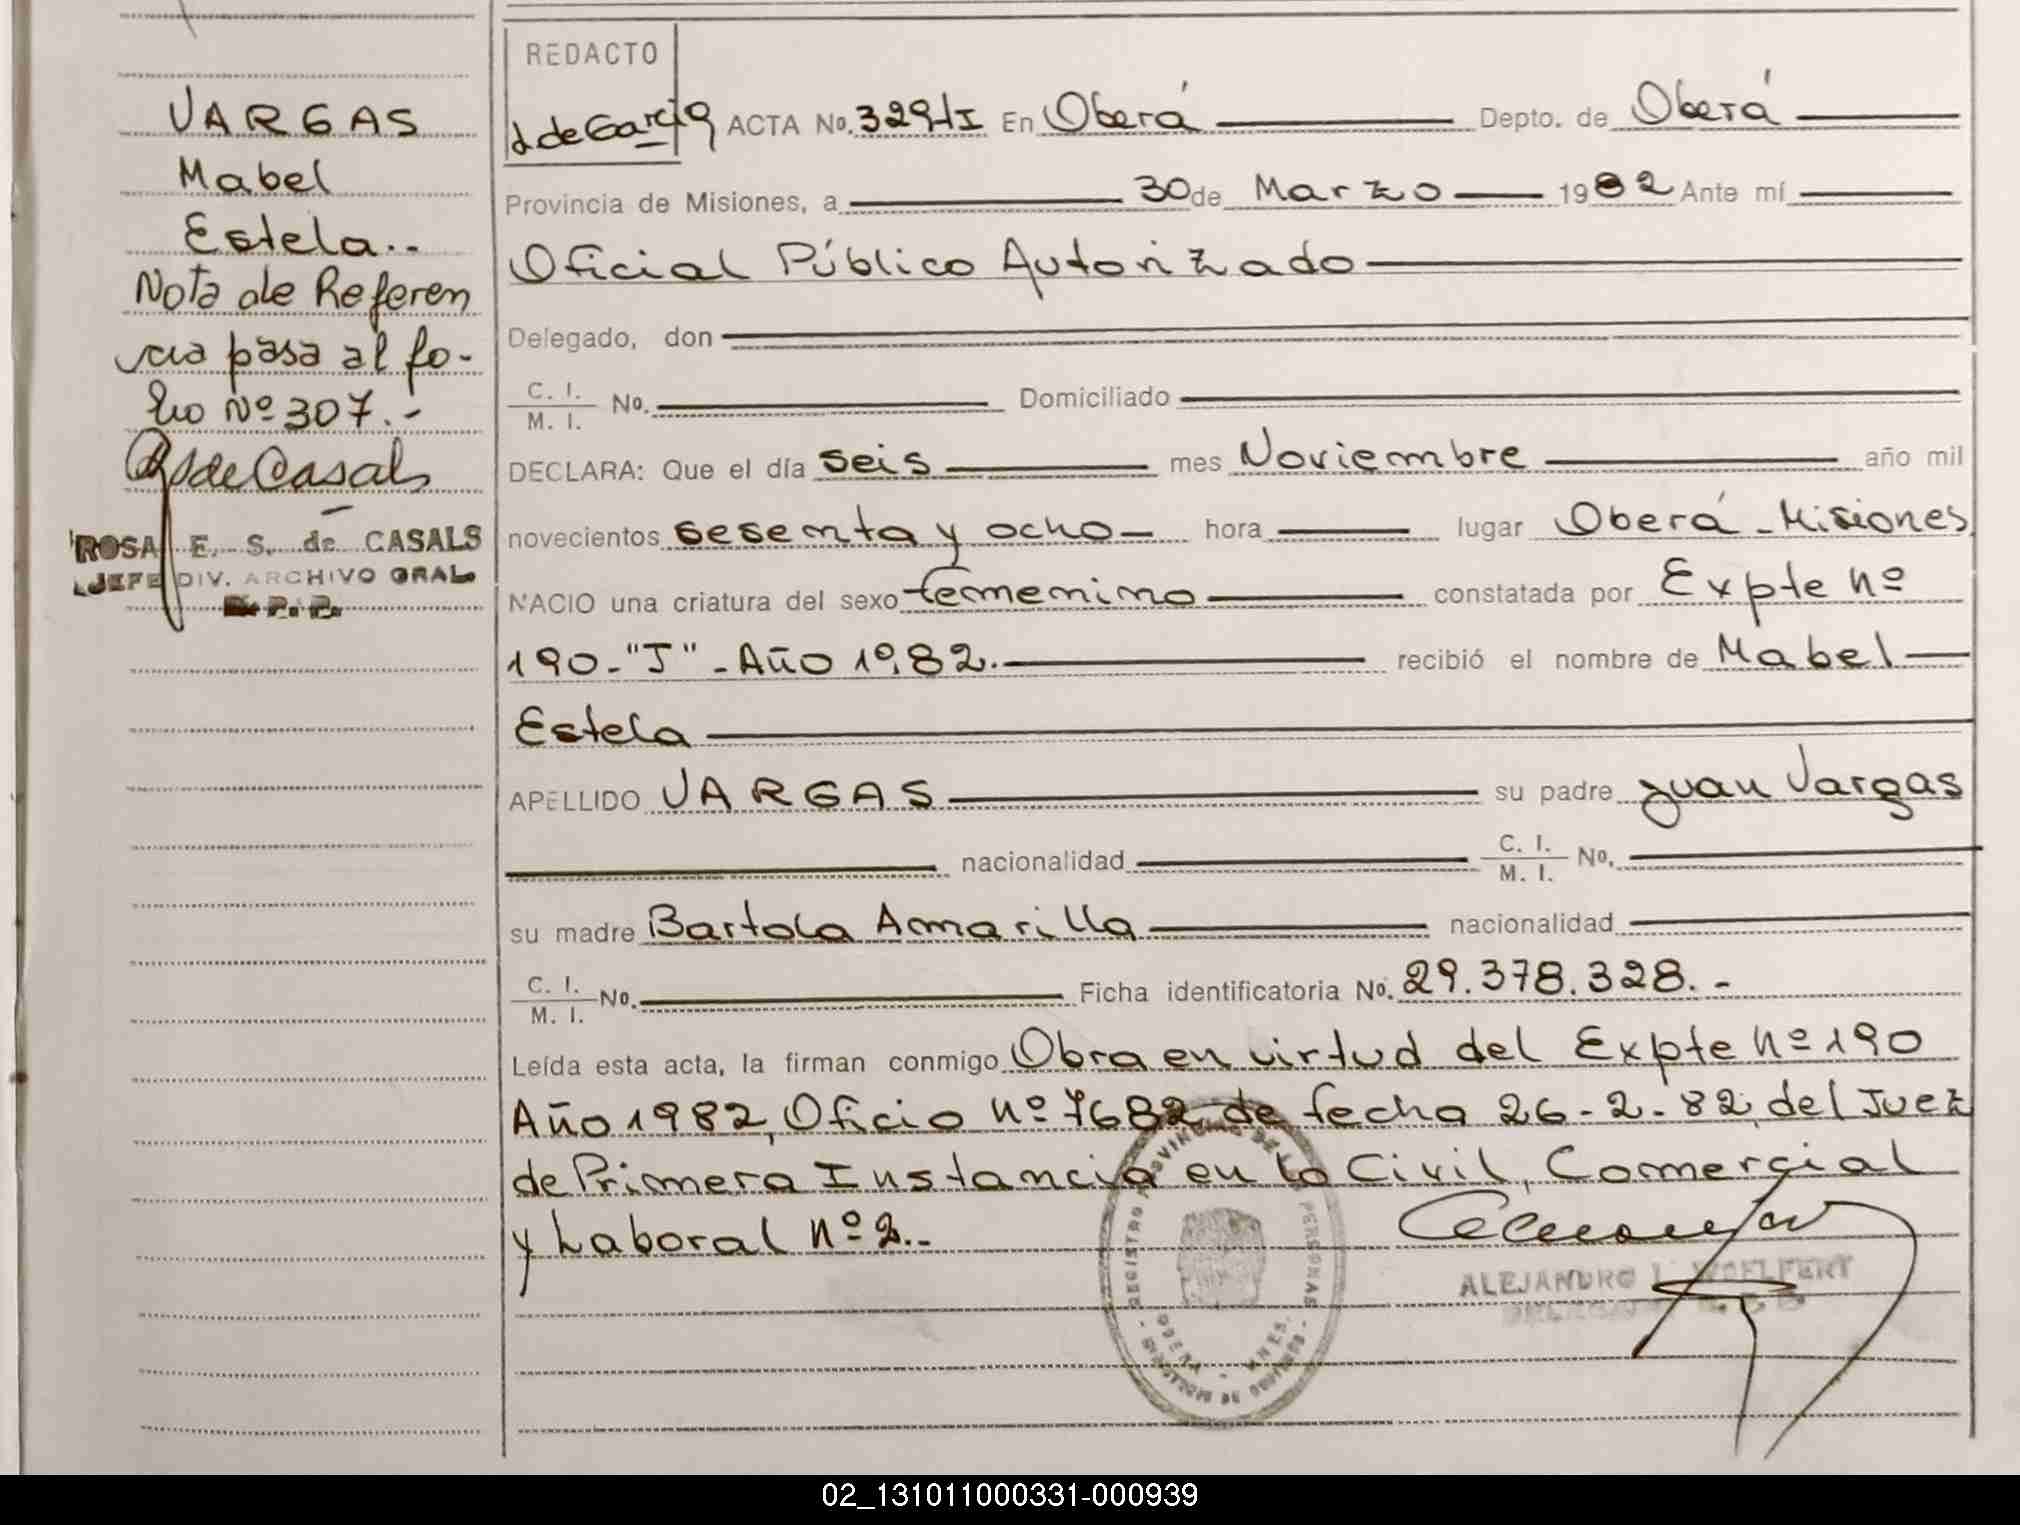 VARGAS
Mabel
Estela..
Nota de Referen
cia pasa al fo-
lio Nº 307.-
de Casals
ROSA E. S. de CASALS
JEFE DIV. ARCHIVO GRAL.
R. P. P.
REDACTO
de Garcia ACTA No. 329-I En Oberá Depto. de Oberá
Provincia de Misiones, a 30 de Marzo 1982 Ante mí
Oficial Público Autorizado
Delegado, don
C. I. / M. I. No. Domiciliado
DECLARA: Que el día seis mes Noviembre año mil
novecientos sesenta y ocho hora lugar Oberá - Misiones
NACIO una criatura del sexo femenino constatada por Expte nº
190-"J"-Año 1982.- recibió el nombre de Mabel
Estela
APELLIDO VARGAS su padre Juan Vargas
nacionalidad C. I. / M. I. No.
su madre Bartola Amarilla nacionalidad
C. I. / M. I. No. Ficha identificatoria No. 29.378.328.-
Leída esta acta, la firman conmigo Obra en virtud del Expte nº 190
Año 1982, Oficio nº 7682 de fecha 26-2-82, del Juez
de Primera Instancia en lo Civil, Comercial
y Laboral nº 2.-
REGISTRO PROVINCIAL DE LAS PERSONAS
OBERA - MNES.
ALEJANDRO L. WOELFERT
02_131011000331-000939